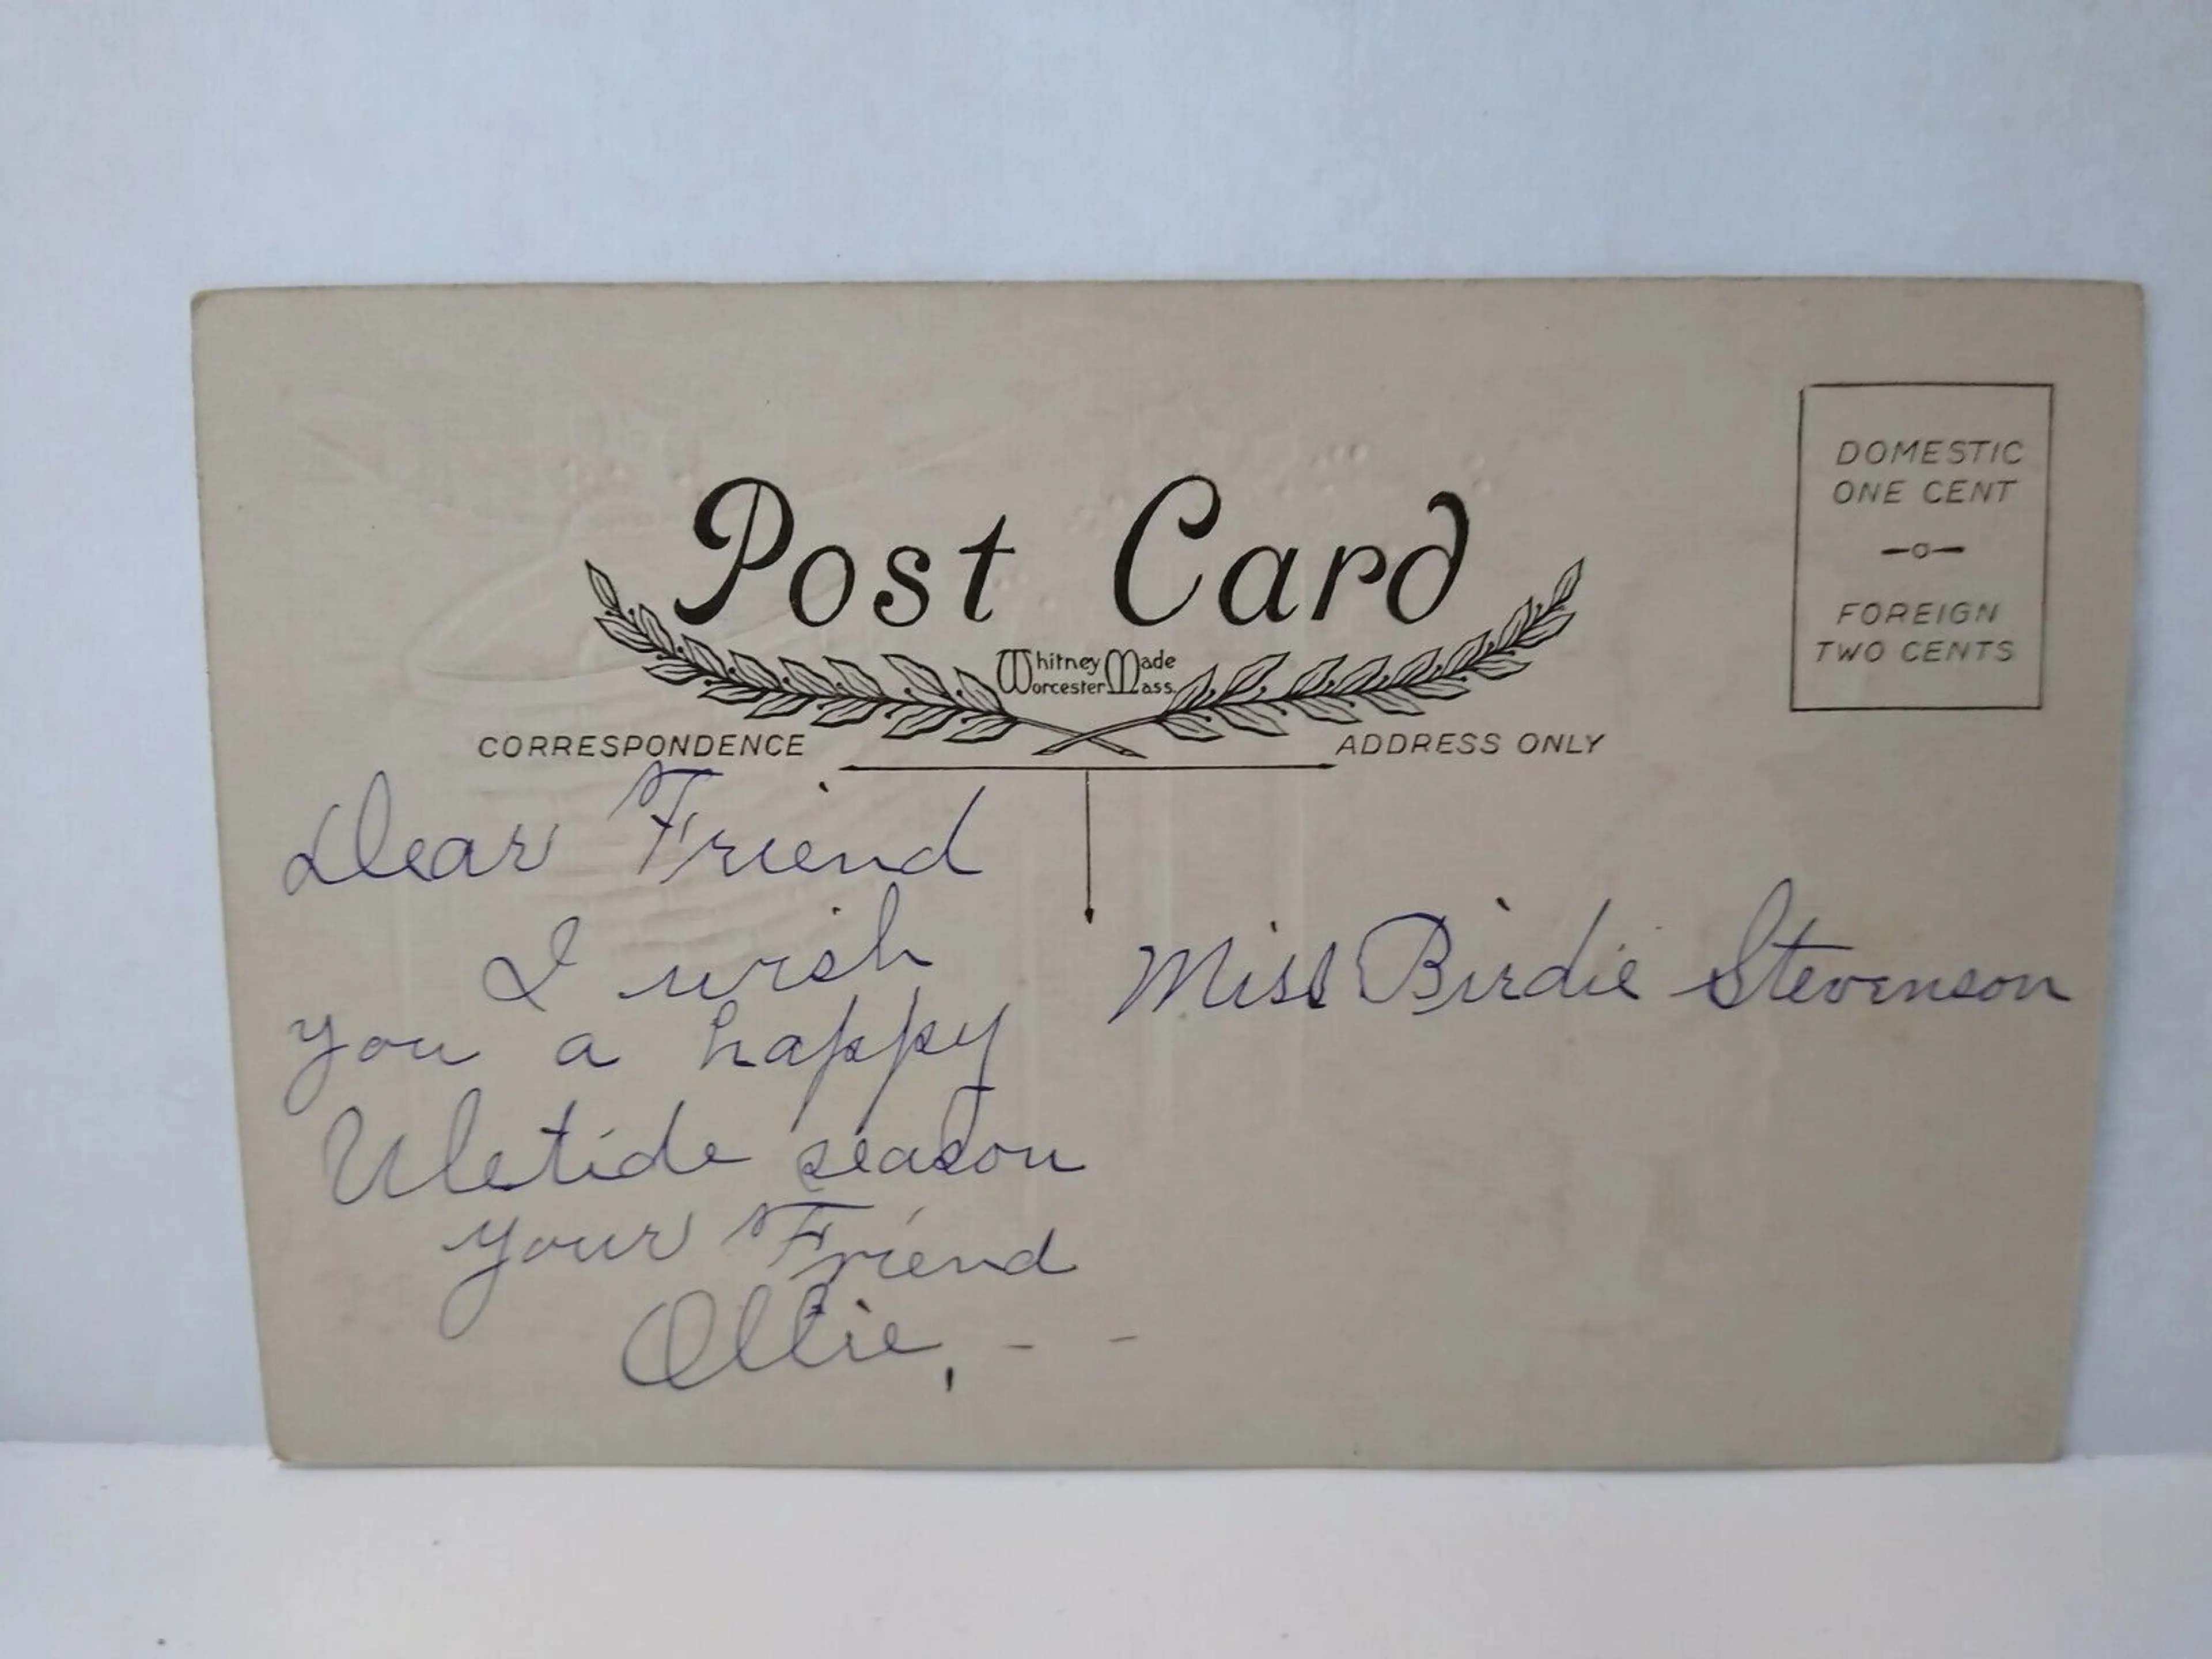 Post Card
Whitney Made
Worcester Mass.
DOMESTIC
ONE CENT
FOREIGN
TWO CENTS
CORRESPONDENCE
ADDRESS ONLY
Dear Friend
I wish
you a happy
Uletide season
your Friend
Ollie, - -
Miss Birdie Stevenson